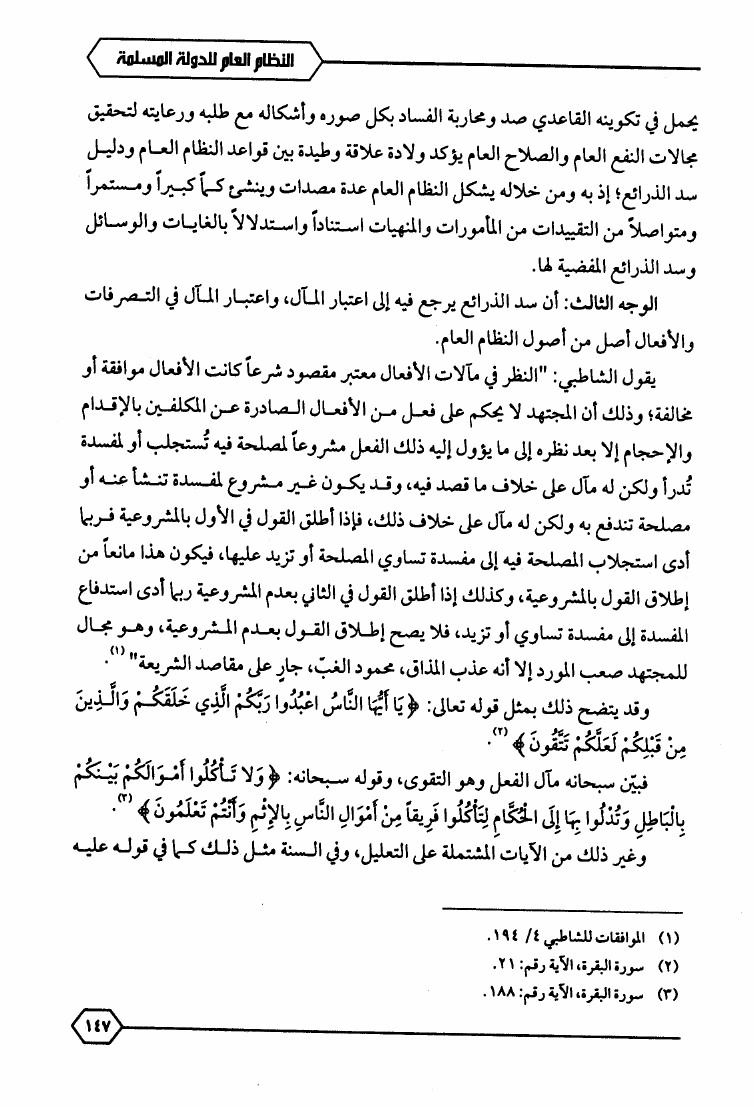 النظام العام للدولة المسلمة
يحمل في تكوينه القاعدي صد ومحاربة الفساد بكل صوره وأشكاله مع طلبه ورعايته لتحقيق
مجالات النفع العام والصلاح العام يؤكد ولادة علاقة وطيدة بين قواعد النظام العام ودليل
سد الذرائع؛ إذ به ومن خلاله يشكل النظام العام عدة مصدات وينشئ كماً كبيراً ومستمراً
ومتواصلاً من التقييدات من المأمورات والمنهيات استناداً واستدلالاً بالغايات والوسائل
وسد الذرائع المفضية لها.
الوجه الثالث: أن سد الذرائع يرجع فيه إلى اعتبار المآل، واعتبار المآل في التصرفات
والأفعال أصل من أصول النظام العام.
يقول الشاطبي: "النظر في مآلات الأفعال معتبر مقصود شرعاً كانت الأفعال موافقة أو
مخالفة؛ وذلك أن المجتهد لا يحكم على فعل من الأفعال الصادرة عن المكلفين بالإقدام
والإحجام إلا بعد نظره إلى ما يؤول إليه ذلك الفعل مشروعاً لمصلحة فيه تُستجلب أو لمفسدة
تُدرأ ولكن له مآل على خلاف ما قصد فيه، وقد يكون غير مشروع لمفسدة تنشأ عنه أو
مصلحة تندفع به ولكن له مآل على خلاف ذلك، فإذا أطلق القول في الأول بالمشروعية فربما
أدى استجلاب المصلحة فيه إلى مفسدة تساوي المصلحة أو تزيد عليها، فيكون هذا مانعاً من
إطلاق القول بالمشروعية، وكذلك إذا أطلق القول في الثاني بعدم المشروعية ربما أدى استدفاع
المفسدة إلى مفسدة تساوي أو تزيد، فلا يصح إطلاق القول بعدم المشروعية، وهو مجال
للمجتهد صعب المورد إلا أنه عذب المذاق، محمود الغبّ، جارٍ على مقاصد الشريعة" (١).
وقد يتضح ذلك بمثل قوله تعالى: ﴿يَا أَيُّهَا النَّاسُ اعْبُدُوا رَبَّكُمْ الَّذِي خَلَقَكُمْ وَالَّذِينَ
مِنْ قَبْلِكُمْ لَعَلَّكُمْ تَتَّقُونَ﴾ (٢).
فبيّن سبحانه مآل الفعل وهو التقوى، وقوله سبحانه: ﴿وَلا تَأْكُلُوا أَمْوَالَكُمْ بَيْنَكُمْ
بِالْبَاطِلِ وَتُدْلُوا بِهَا إِلَى الْحُكَّامِ لِتَأْكُلُوا فَرِيقاً مِنْ أَمْوَالِ النَّاسِ بِالإِثْمِ وَأَنْتُمْ تَعْلَمُونَ﴾ (٣).
وغير ذلك من الآيات المشتملة على التعليل، وفي السنة مثل ذلك كما في قوله عليه
(١) الموافقات للشاطبي ٤/ ١٩٤.
(٢) سورة البقرة، الآية رقم: ٢١.
(٣) سورة البقرة، الآية رقم: ١٨٨.
١٤٧